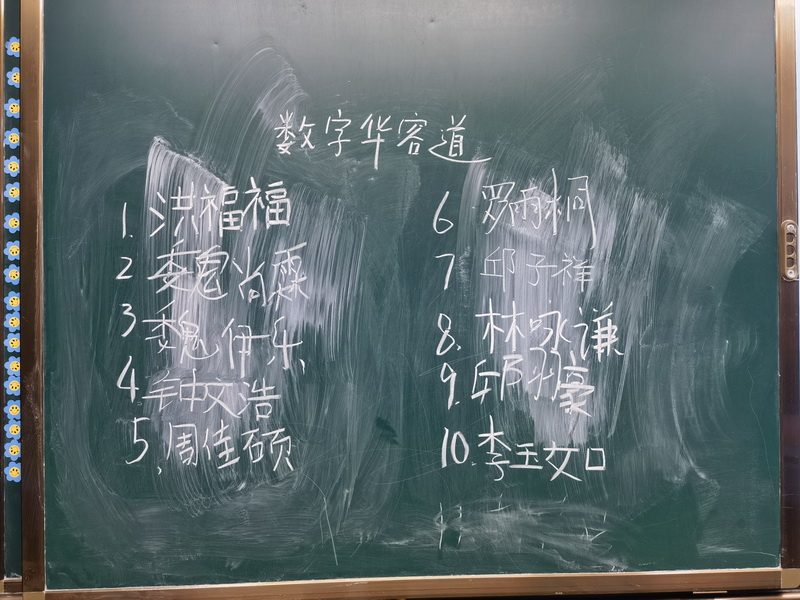 数字华客道
1. 洪福福
2 魏尚霖
3 魏伊乐
4. 钟文浩
5. 周佳硕
6 罗雨桐
7 邱子祥
8. 林咏谦
9. 邱羽豪
10. 李玉如